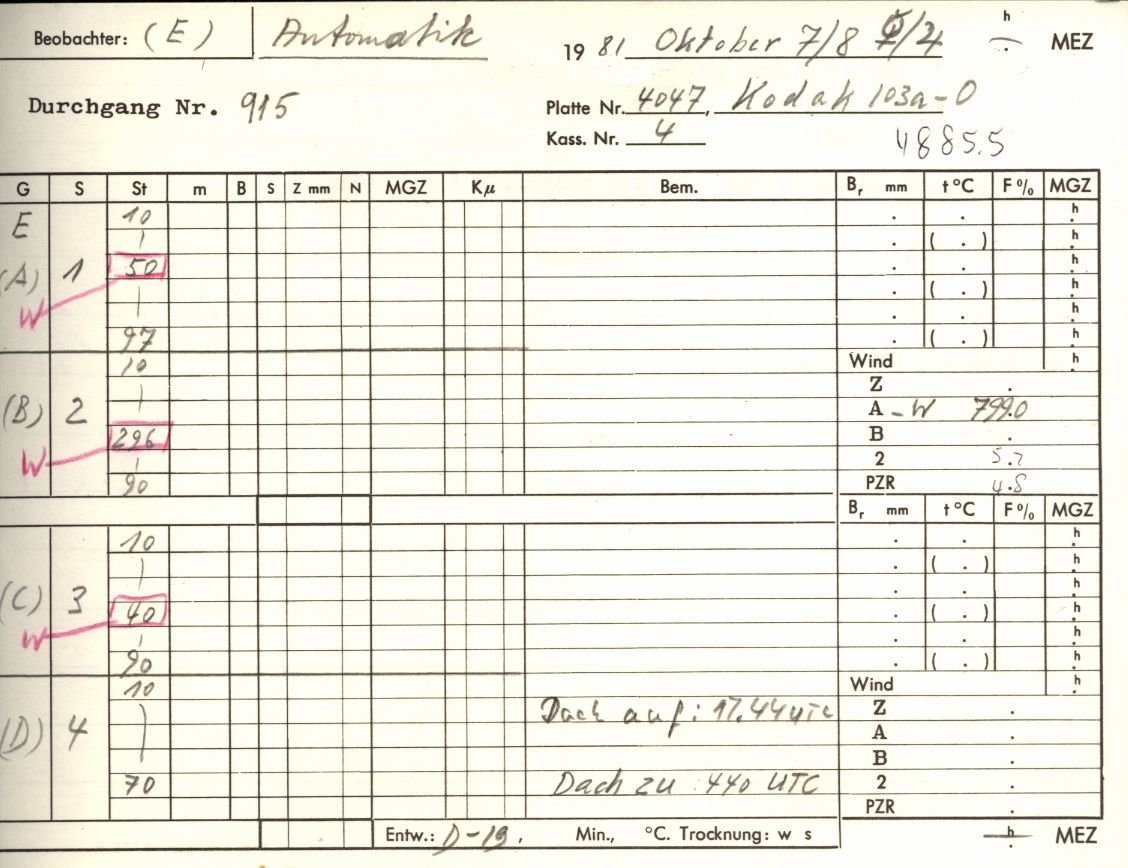 Beobachter: (E) Automatik 1981 Oktober 7/8 /4 h . MEZ
Durchgang Nr. 915 Platte Nr. 4047, Kodak 103a-O
Kass. Nr. 4 4885.5
G S St m B S Z mm N MGZ Kμ Bem. Br mm t °C F % MGZ
E 10 . . h
| . ( . ) h
(A) 1 50 . . h
W | . ( . ) h
. . h
97 . ( . ) h
10 Wind h
| Z .
(B) 2 A - W 799.0
296 B .
W | 2 5.2
90 PZR 4.8
Br mm t °C F % MGZ
10 . . h
| . ( . ) h
. . h
(C) 3 40 . ( . ) h
W | . . h
90 . ( . ) h
10 Wind h
Dach auf: 17.44 UTC Z .
(D) 4 A .
B .
70 Dach zu 440 UTC 2 .
PZR .
Entw.: D-19, Min., °C. Trocknung: w s h . MEZ